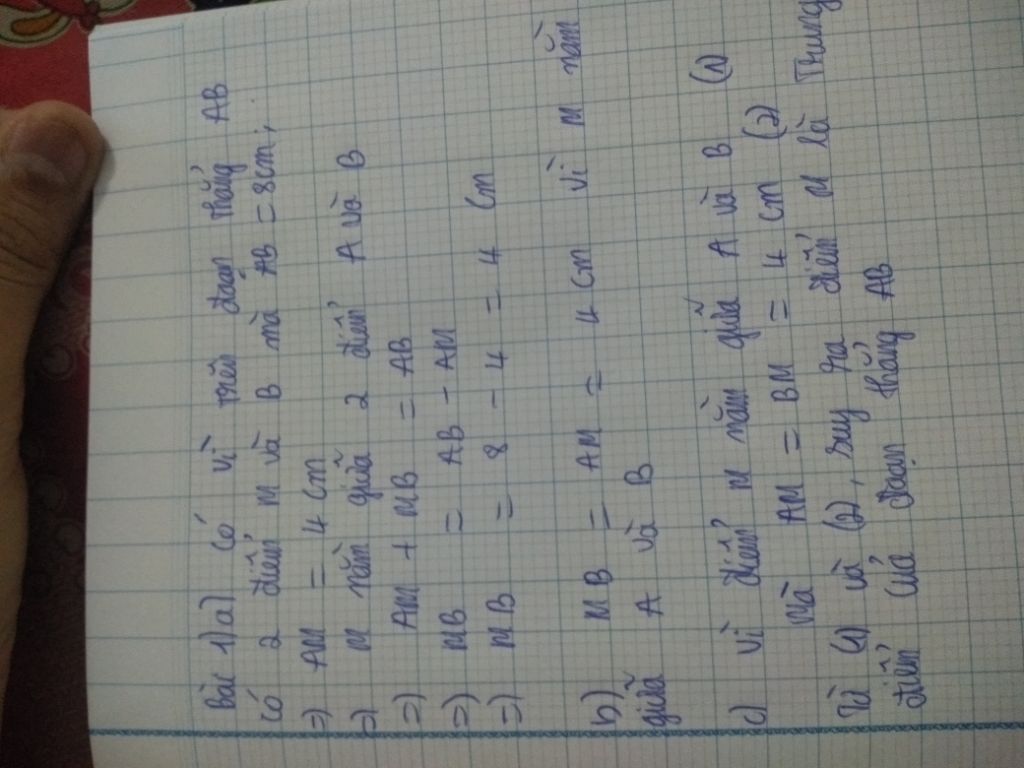 Bài 1) a) Có vì trên đoạn thẳng AB
có 2 điểm M và B mà AB = 8cm;
=) AM = 4 cm
=) M nằm giữa 2 điểm A và B
=) AM + MB = AB
=) MB = AB - AM
=) MB = 8 - 4 = 4 cm
b) MB = AM = 4 cm vì M nằm
giữa A và B
c) Vì điểm M nằm giữa A và B (1)
Mà AM = BM = 4 cm (2)
Từ (1) và (2), suy ra điểm M là Trung
điểm của đoạn thẳng AB